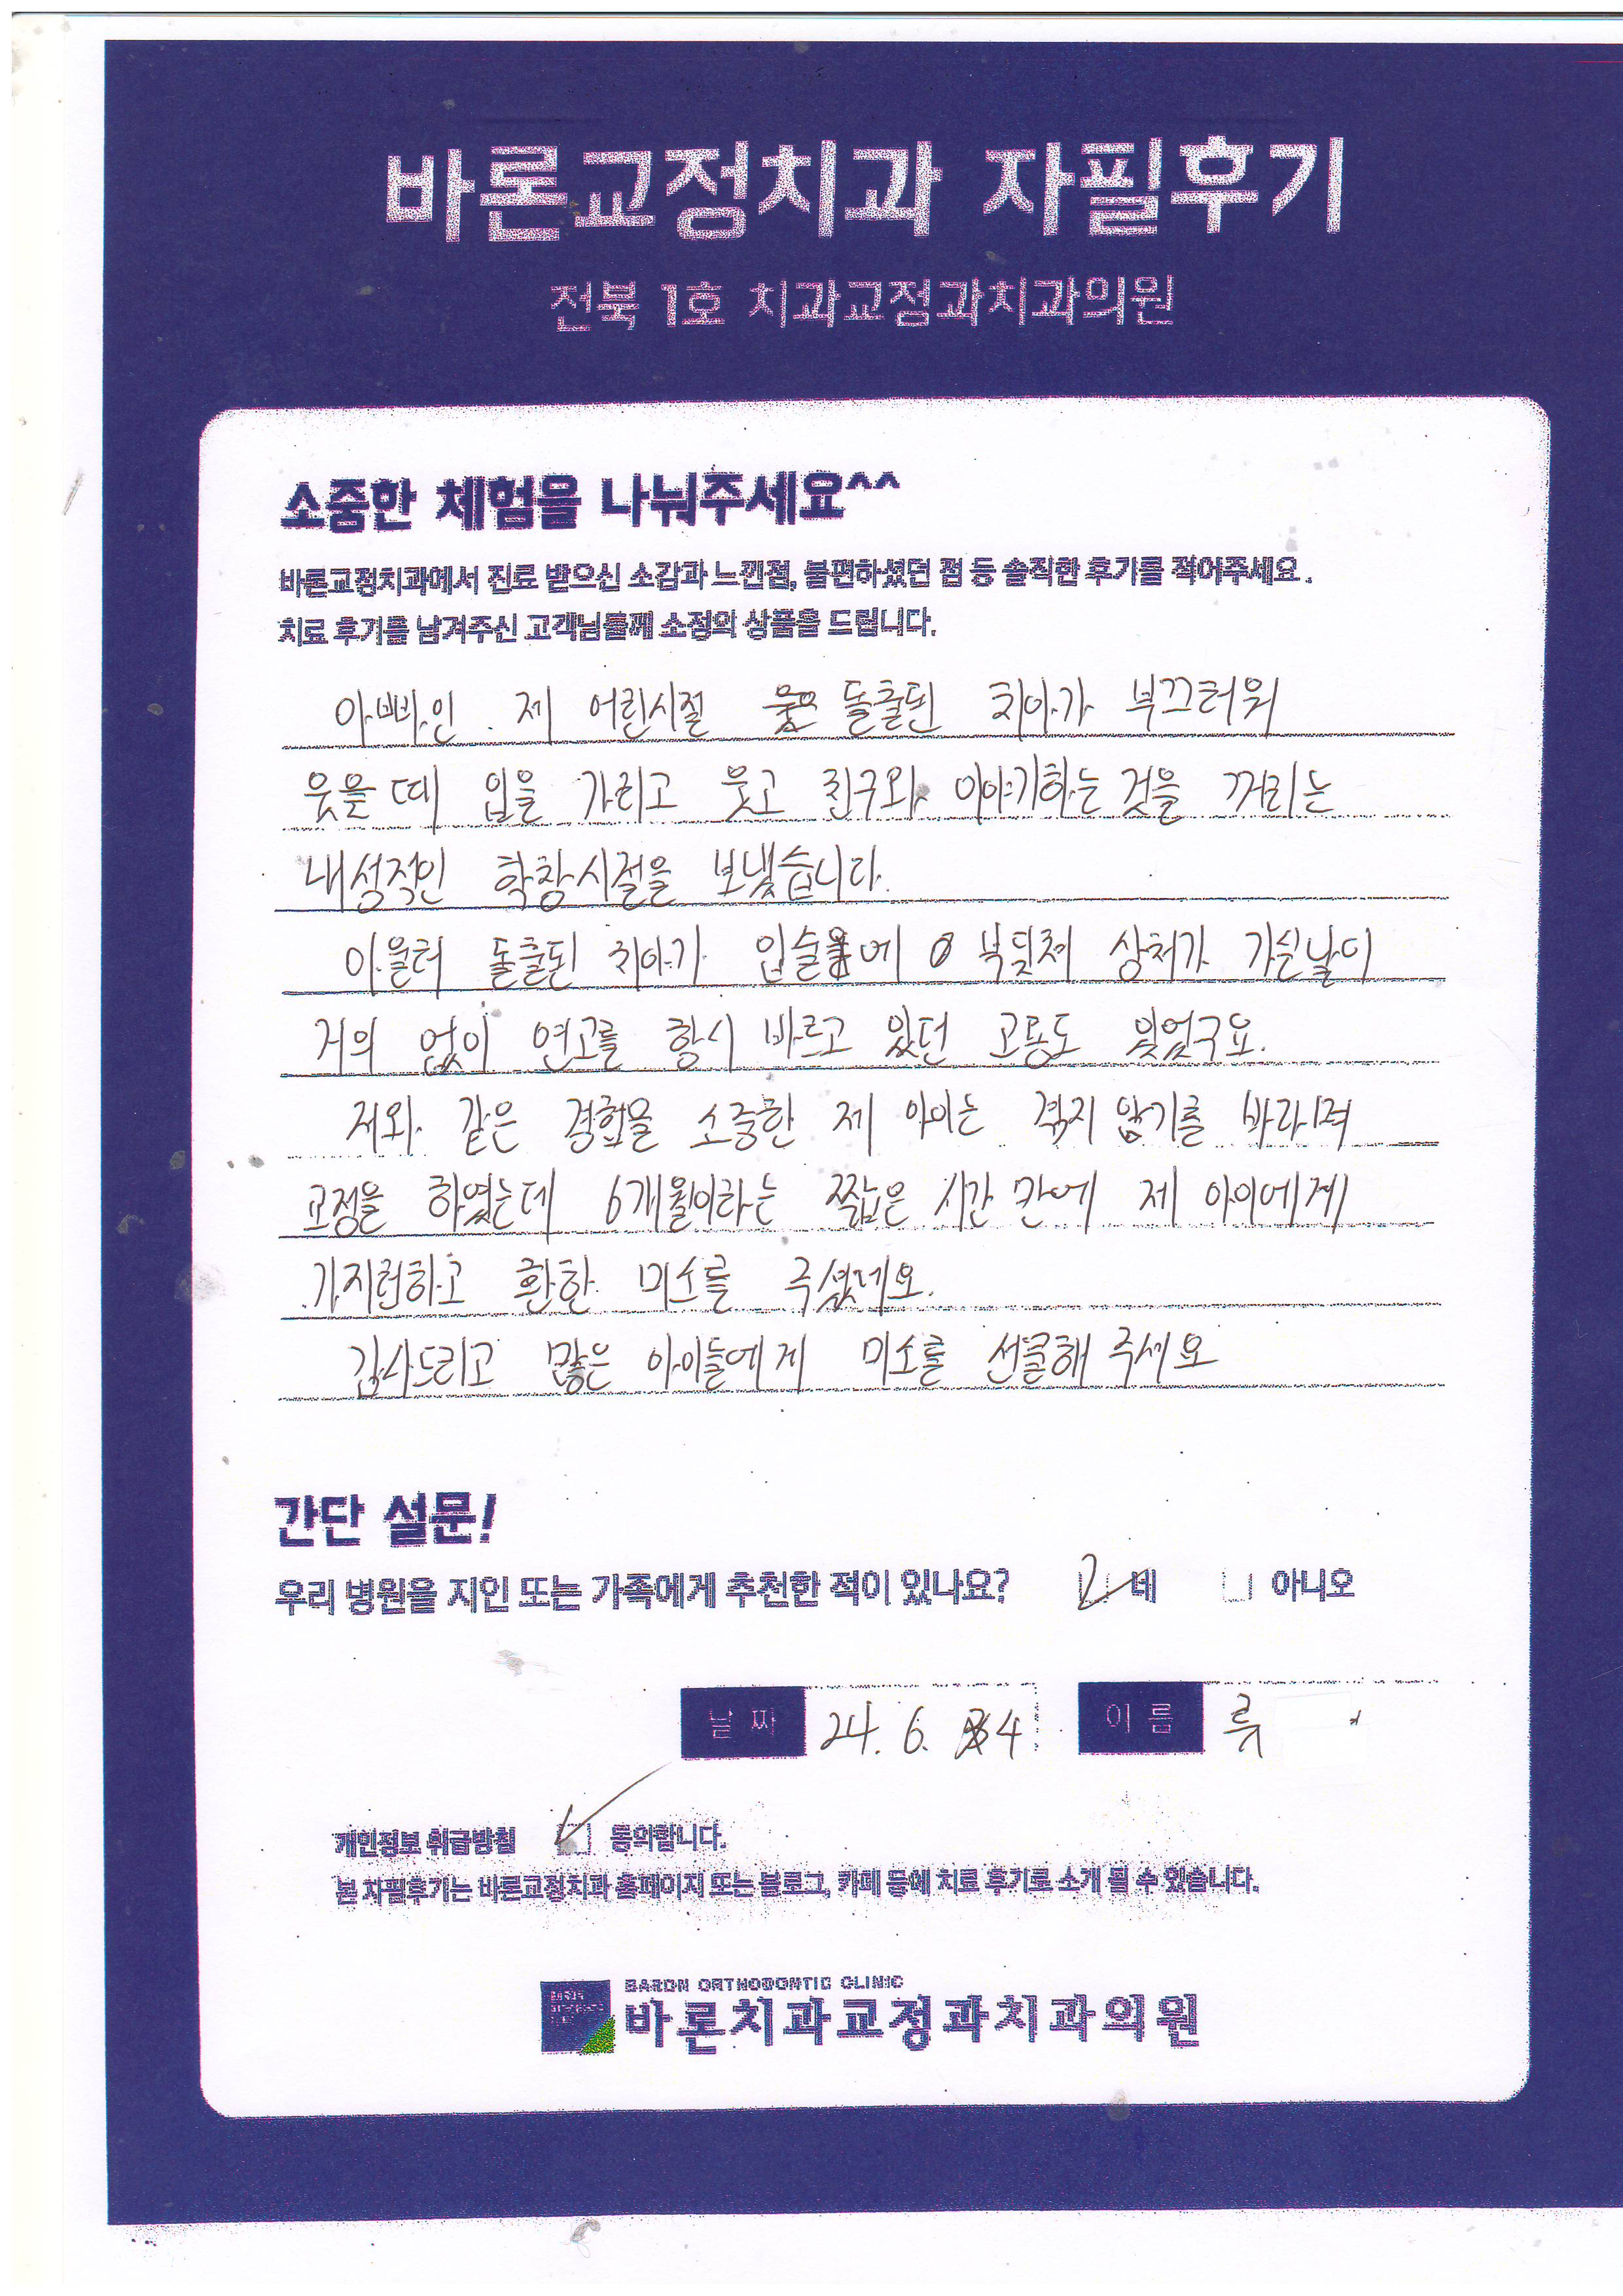 바론교정치과 자필후기
전북 1호 치과교정과치과의원
소중한 체험을 나눠주세요^^
바론교정치과에서 진료 받으신 소감과 느낀점, 불편하셨던 점 등 솔직한 후기를 적어주세요.
치료 후기를 남겨주신 고객님들께 소정의 상품을 드립니다.
아빠인 제 어린시절 돌출된 치아가 부끄러워
웃을때 입을 가리고 웃고 친구와 이야기하는 것을 꺼리는
내성적인 학창시절을 보냈습니다.
아울러 돌출된 치아가 입술에 부딪쳐 상처가 가신날이
거의 없이 연고를 항시 바르고 있던 고통도 있었구요.
저와 같은 경험을 소중한 제 아이는 겪지 않기를 바라며
교정을 하였는데 6개월이라는 짧은 시간 만에 제 아이에게
가지런하고 환한 미소를 주셨네요.
감사드리고 많은 아이들에게 미소를 선물해 주세요
간단 설문!
우리 병원을 지인 또는 가족에게 추천한 적이 있나요? 네 아니오
날짜 24. 6. 4 이름 류
개인정보 취급방침 동의합니다.
본 자필후기는 바론교정치과 홈페이지 또는 블로그, 카페 등에 치료 후기로 소개 될 수 있습니다.
BARON ORTHODONTIC CLINIC
바론치과교정과치과의원